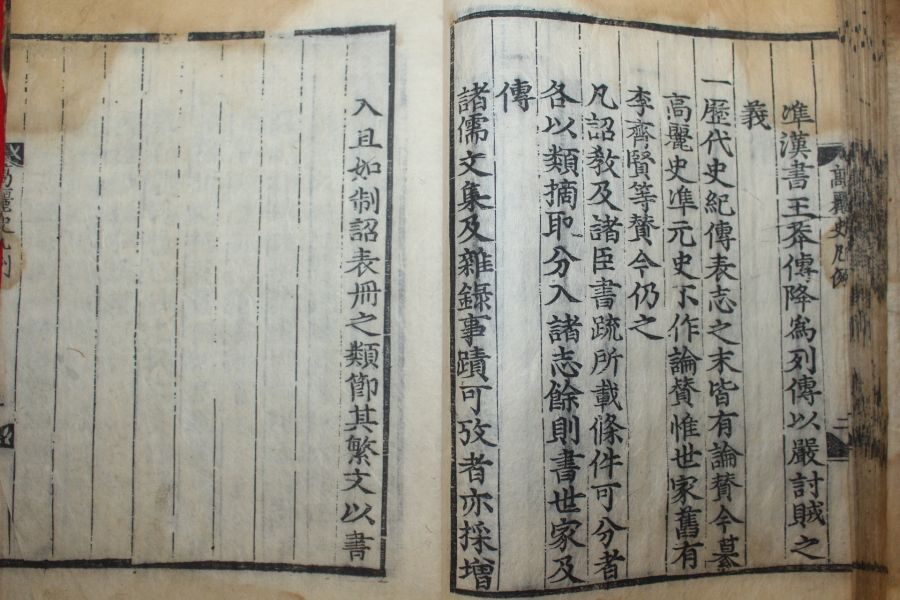 高麗史凡例 二
準漢書王莽傳降爲列傳以嚴討賊之
義
一歷代史紀傳表志之末皆有論賛今纂
高麗史準元史不作論賛惟世家舊有
李齊賢等賛今仍之
凡詔敎及諸臣書疏所載條件可分者
各以類摘取分入諸志餘則書世家及
傳
諸儒文集及雜錄事蹟可攷者亦採增
入且如制詔表冊之類節其繁文以書
高麗史